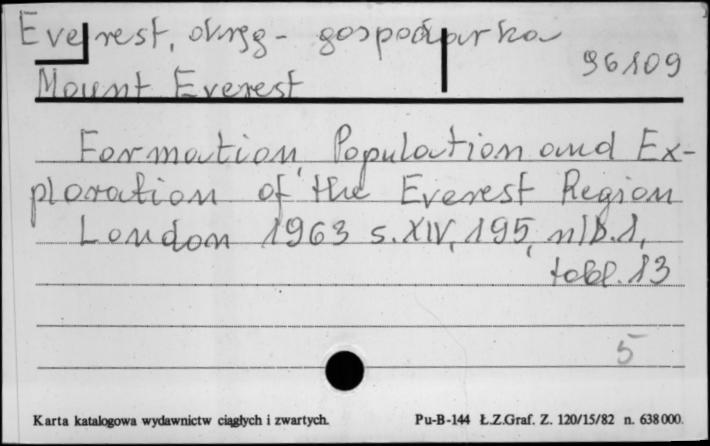 Everest, okręg - gospodarka
96109
Mount Everest
Formation, Population and Ex-
ploration of the Everest Region
London 1963 s. XIV, 195, nlb. 1,
tabl. 13
5
Karta katalogowa wydawnictw ciągłych i zwartych.
Pu-B-144 Ł.Z.Graf. Z. 120/15/82 n. 638000.